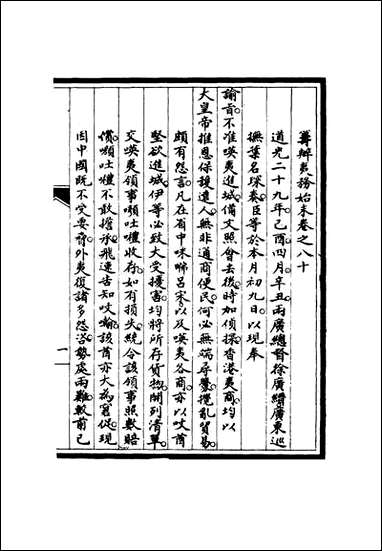 籌辦夷務始末卷之八十
道光二十九年己酉四月辛丑兩廣總督徐廣縉廣東巡
撫葉名琛奏臣等於本月初九日以現奉
諭旨不准㗸夷進城備文照會去後時加偵探香港夷商均以
大皇帝推恩保護遠人無非通商便民何必無端尋釁攪亂貿易
頗有怨言凡在省中咪唎呂宋以及㗸夷各商亦以㕭酋
堅欲進城伊等必致大受擾害均將所存貨物開列清單
交㗸夷領事㘔吐㘓收存如有損失統令該領事照數賠
償㘔吐㘓不敢擔承飛速告知㕭喻該酋亦大為窘促現
因中國既不受要脅外夷復諸多怨咨勢處兩難較前已
一